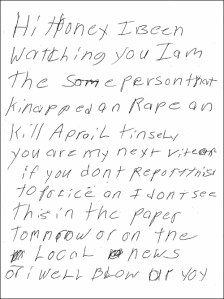 Hi Honey I Been
Watching you I am
The Some person that
kinapped an Rape an
Kill Aproil Tinsely
you are my next vitem
if you dont Report this
to police an I dont see
this in the paper
Tomorrow or on the
Local news
or i well Blow up you